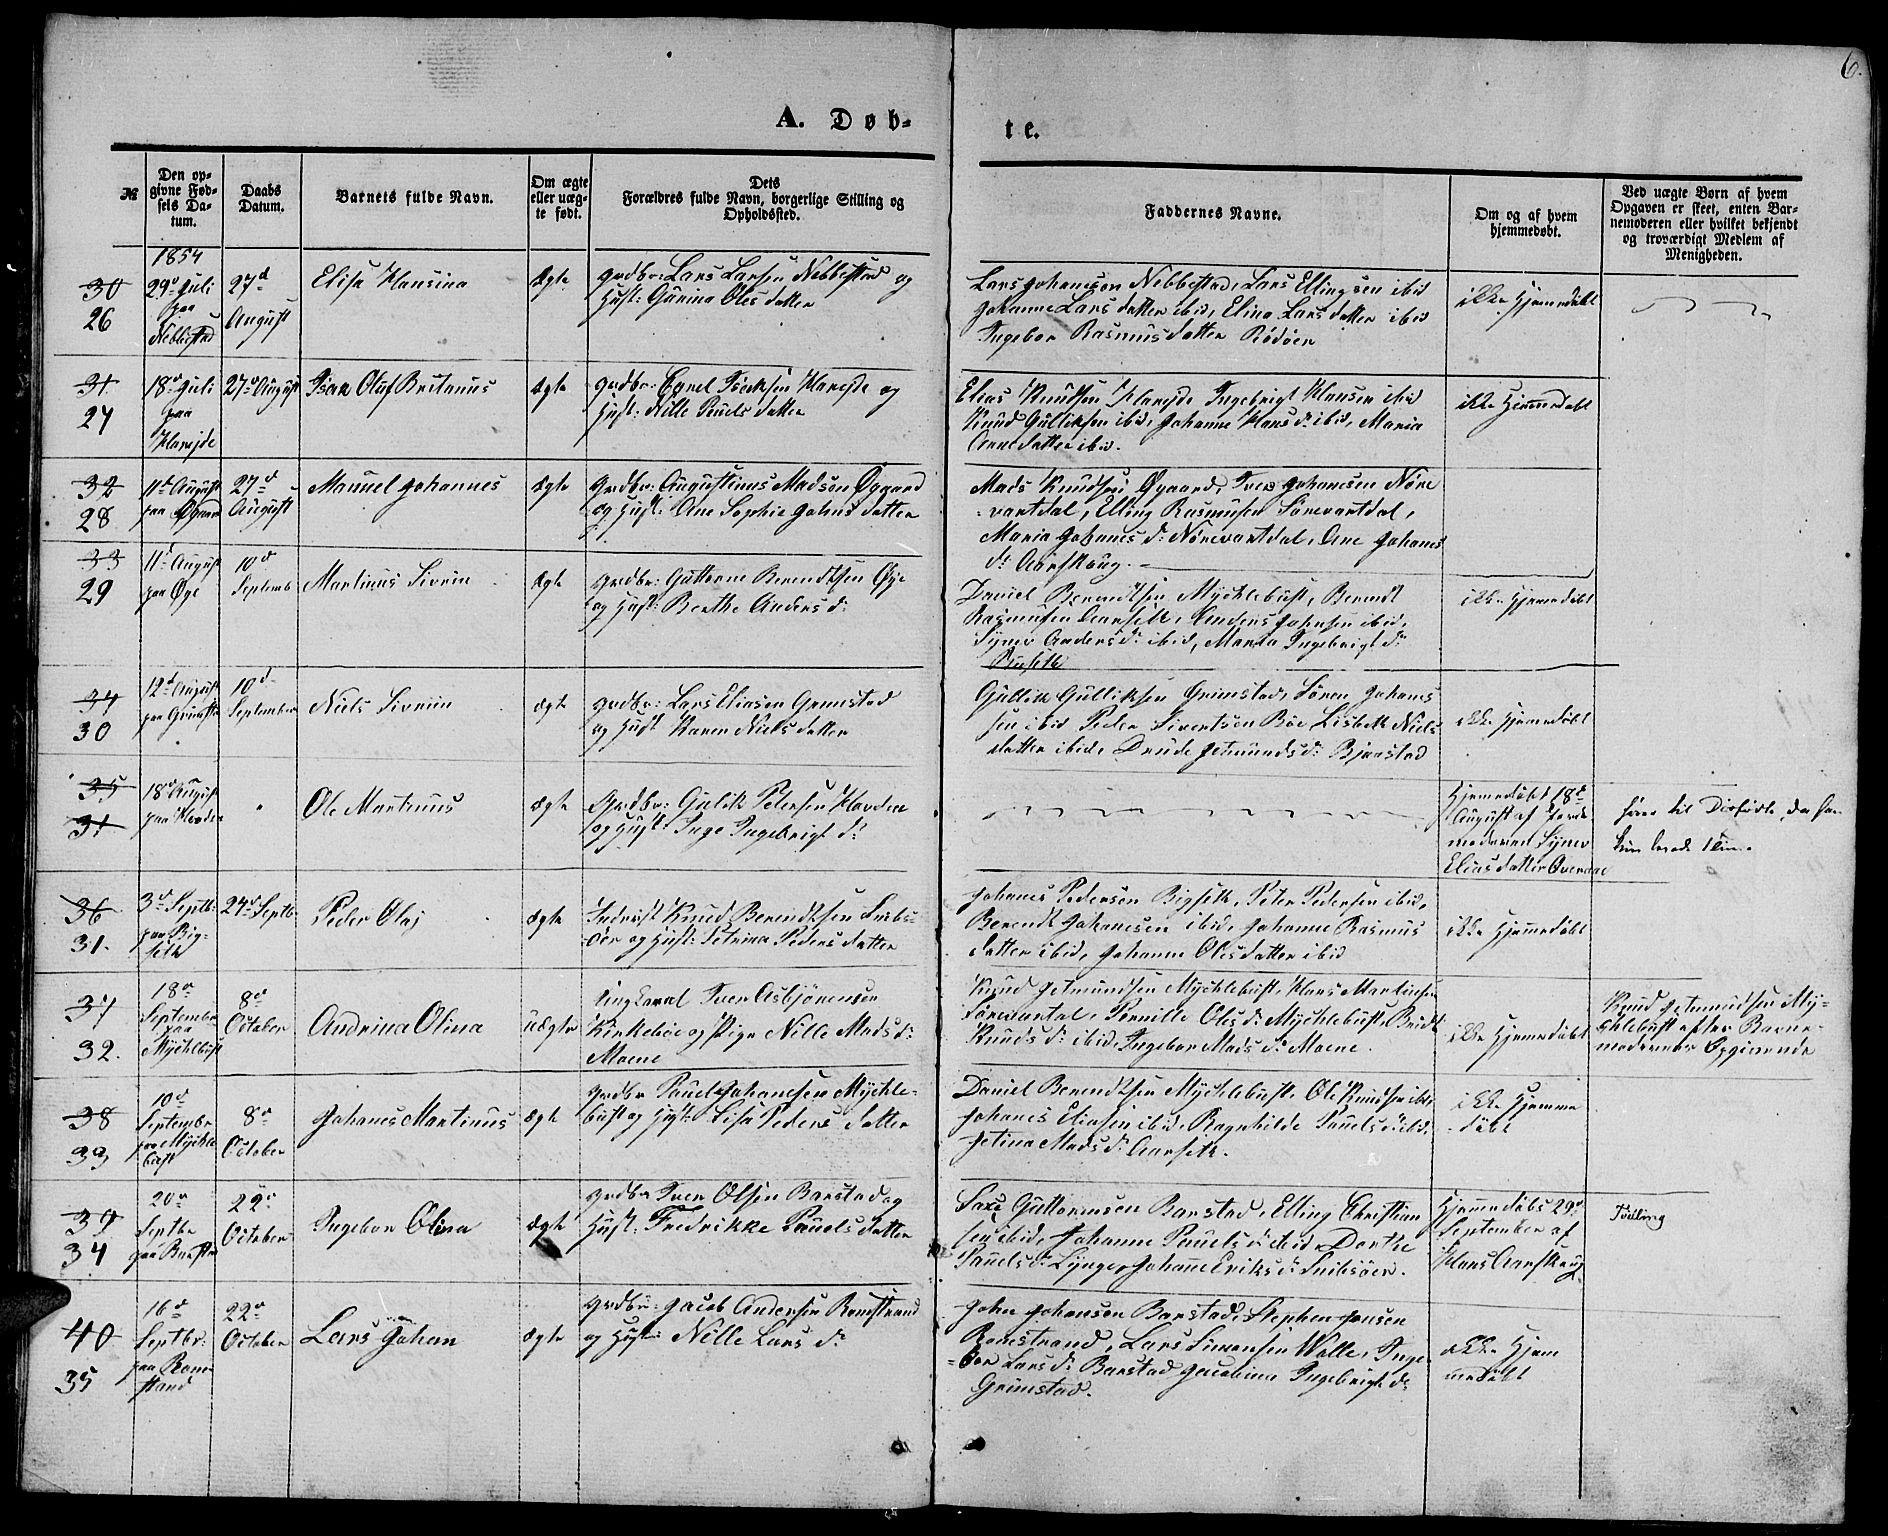 6.
A. Døb-
te.
№
Den op-
givne Fød-
sels Da-
tum.
Daabs
Datum.
Barnets fulde Navn.
Om ægte
eller uæg-
te født.
Dets
Forældres fulde Navn, borgerlige Stilling og
Opholdssted.
Faddernes Navne.
Om og af hvem
hjemmedøbt.
Ved uægte Børn af hvem
Opgaven er skeet, enten Bar-
nemoderen eller hvilket bekjendt
og troværdigt Medlem af
Menigheden.
1854
30
26
29d Juli
paa
Nebbestad
27d
August
Elisa Hansina
Ægte
Grdbr: Lars Larsen Nebbestad og
Hust: Gurina Olesdatter
Lars Johansen Nebbestad, Lars Ellingsen ibid
Johanne Larsdatter ibid, Elina Larsdatter ibid
Ingebor Rasmusdatter Rødøen
ikke Hjemedøbt
31
27
18d Juli
paa
Hareide
27d August
Isak Oluf Britanus
Ægte
Grdbr: Isaksen Hareide og
Hust: Nille Paulsdatter
Elias Knudsen Hareide Ingebrigt Hansen ibid
Knud Gulliksen ibid, Johanne Hansdr ibid, Maria
Arnedatter ibid.
ikke Hjemmedøbt
32
28
11d August
paa Øgaar
27d
August
Manuel Johannes
Ægte
Grdbr: Augustinus Madsen Øgaard
og Hust: Ane Sophie Johnsdatter
Mads Knudsen Øgaard, Iver Johanesen Nøre
vartdal, Elling Rasmusen Sørevartdal,
Maria Johanesdr Nørevartdal, Ane Johanes
dr Aarskoug.
33
29
11d August
paa Øye
10d
Septemb
Martinus Sivrin
Ægte
Grdbr: Guttorm Berendtsen Øye
og Hust: Berthe Andersdr
Daniel Berendtsen Myhlebust, Berendt
Rasmusen Aarseth, Anders Johnsen ibid,
Synev Andersdr ibid, Maria Ingebrigtdr
Riiseth
ikke Hjemedøbt
34
30
12d August
paa Grimsta
10d
September
Niels Sivrin
ægte
Grdbr: Lars Eliasen Grimstad
og Hust Karen Nielsdatter
Gullik Gulliksen Grimstad, Søren Johanes
sen ibid Peder Sivertsen Bøe Lisbeth Niels
datter ibid, Drude Jetmundsdr Bjaastad
ikke Hjemedøbt
35
31
18d August
paa Hovden
Ole Martinus
ægte
Grdbr: Gulik Petersen Hovden
og Hust: Inge Ingebrigtdr
Hjemedøbt 18d
August af Jorde
moderen Synev
Eliasdatter Overaae
hører til Dødfødte, da han
kun levede 1 Time.
36
31.
3d Septb:
paa Big-
seth
24d Septb
Peder Olaj
ægte
Inderst Knud Berendtsen Snibs-
öer og Hust: Petrina Pedersdatter
Johanes Pedersen Bigseth, Peter Pedersen ibid,
Berendt Johanesen ibid, Johanne Rasmus
datter ibid, Johanne Olesdatter ibid
ikke Hjemmedøbt
37
32.
18d
Septembr
paa
Myhlbust
8d
October
Andrina Olina
uægte
Ungkarl Iver Asbjørnsen
Kirkeböe og Pige Nille Madsdr
Moene
Knud Jetmundsen Myhlebust, Hans Martinsen
Sørevartal, Pernille Olesdr Myhlebust, Bridt
Knudsdr ibid, Ingebor Madsdr Moene.
ikke Hjemedøbt
Knud Jetmundsen My-
hlebust efter Barne-
moderens Opgivende
38
33
10d
Septembr
paa Myhle
bust
8d
October
Johanes Martinus
ægte
Grdbr Paul Johanesen Myhle-
bust og Hust: Lisa Pedersdatter
Daniel Berendtsen Myhlebust, Ole Knudsen ibid,
Johanes Eliasen ibid, Ragnhilde Paulsdr ibid,
Jetina Madsdr Aarseth.
ikke Hjemme
døbt
39
34
20d
Septbr
paa Barsta
22d
October
Ingebor Olina
ægte
Grdbr Iver Olsen Barstad og
Hust: Fredrikke Paulsdatter
Saxe Guttormsen Barstad, Elling Christian
sen ibid, Johanne Paulsdr ibid Dorthe
Paulsdr Lynge, Johane Eriksdr Snibsöer.
Hjemmedøbt 29d
September af
Hans Aarskoug
Tvilling
40
35
16d
Septbr.
paa Ram-
strand
22d
October
Lars Johan
ægte
Grdbr: Jacob Andersen Ramstrand
og Hust: Nille Larsdr
John Johansen Barstad, Stephen Jonsen
Ramstrand, Lars Simonsen Wolle, Inge-
bor Larsdr Barstad Jacobina Ingebrigtdr
Grimstad.
ikke Hjem
medøbt